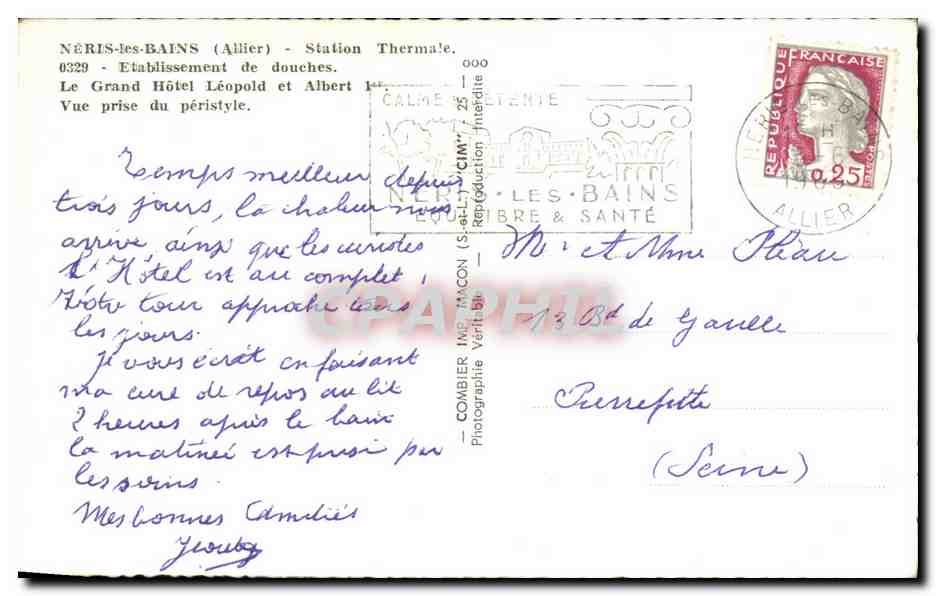 NÉRIS-les-BAINS (Allier) - Station Thermale.
0329 - Etablissement de douches.
Le Grand Hôtel Léopold et Albert 1er.
Vue prise du péristyle.
Temps meilleur depuis
trois jours, la chaleur nous
arrive, ainsi que les curistes
L'Hôtel est au complet,
Votre tour approche tous
les jours.
Je vous écrit en faisant
ma cure de repos au lit
2 heures après le bain
la matinée est prise par
les soins.
Mes bonnes Amitiés
— COMBIER IMP. MACON (S.-et-L.) "CIM" - 25 — ooo
Photographie Véritable - Reproduction Interdite
CALME DÉTENTE
NERIS·LES·BAINS
EQUILIBRE & SANTÉ
REPUBLIQUE FRANÇAISE
0,25
NERIS-LES-BAINS
ALLIER
Mr et Mme
13 Bd de Gaulle
Pierrefitte
(Seine)
CPAPHIL